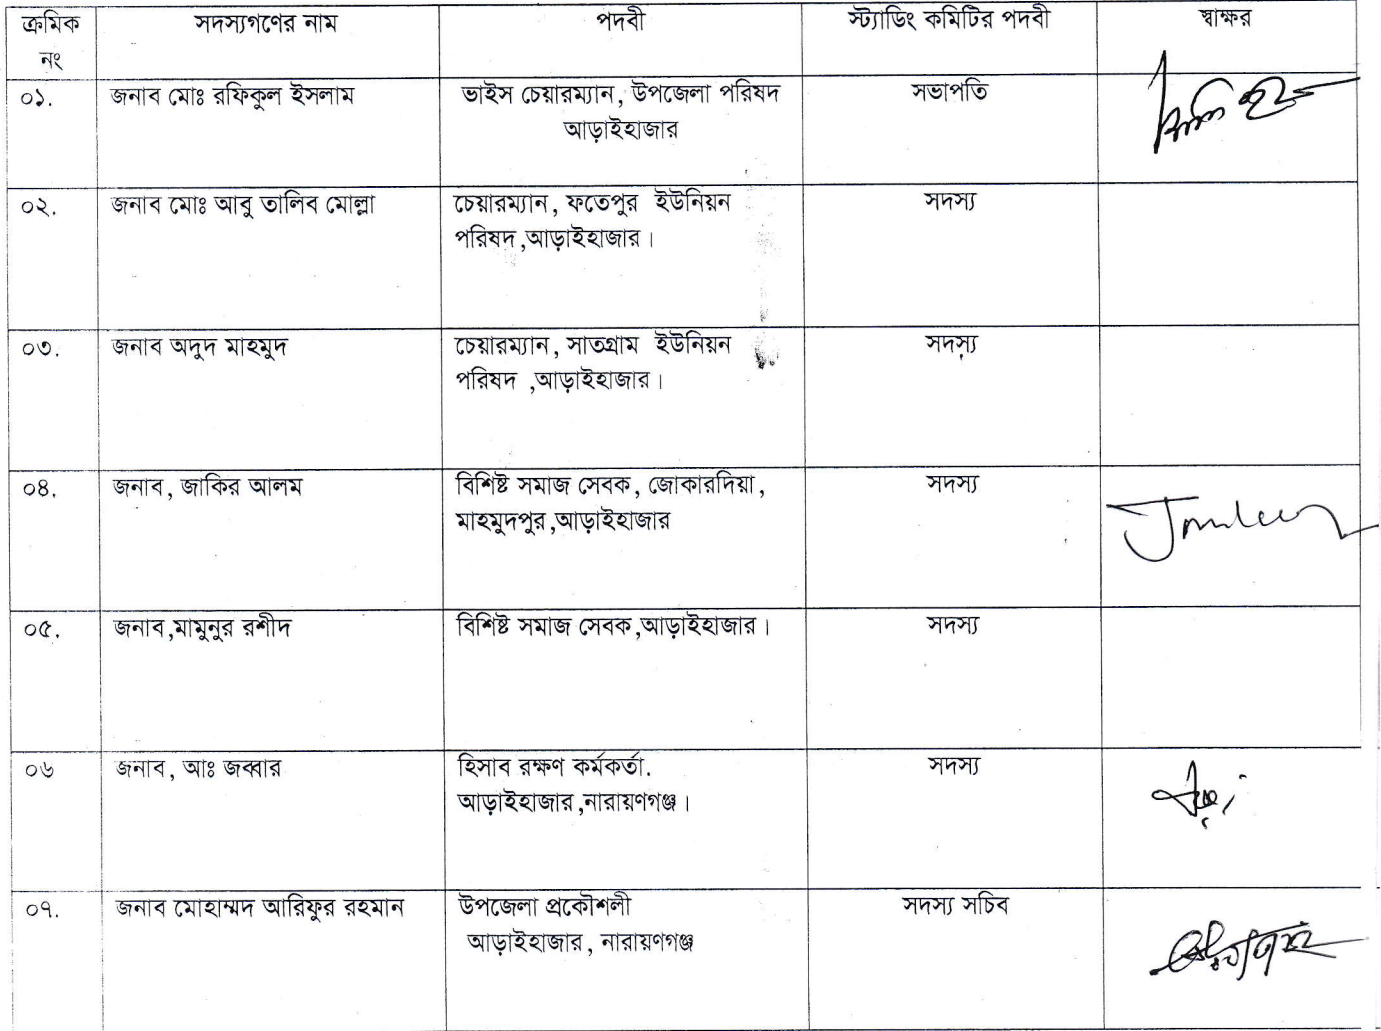 ক্রমিক নং | সদস্যগণের নাম | পদবী | স্ট্যাডিং কমিটির পদবী | স্বাক্ষর
০১. | জনাব মোঃ রফিকুল ইসলাম | ভাইস চেয়ারম্যান, উপজেলা পরিষদ
আড়াইহাজার | সভাপতি
০২. | জনাব মোঃ আবু তালিব মোল্লা | চেয়ারম্যান, ফতেপুর ইউনিয়ন
পরিষদ,আড়াইহাজার। | সদস্য
০৩. | জনাব অদুদ মাহমুদ | চেয়ারম্যান, সাতগ্রাম ইউনিয়ন
পরিষদ ,আড়াইহাজার। | সদস্য
০৪. | জনাব, জাকির আলম | বিশিষ্ট সমাজ সেবক, জোকারদিয়া,
মাহমুদপুর,আড়াইহাজার | সদস্য
০৫. | জনাব,মামুনুর রশীদ | বিশিষ্ট সমাজ সেবক,আড়াইহাজার। | সদস্য
০৬ | জনাব, আঃ জব্বার | হিসাব রক্ষণ কর্মকর্তা.
আড়াইহাজার,নারায়ণগঞ্জ। | সদস্য
০৭. | জনাব মোহাম্মদ আরিফুর রহমান | উপজেলা প্রকৌশলী
আড়াইহাজার, নারায়ণগঞ্জ | সদস্য সচিব